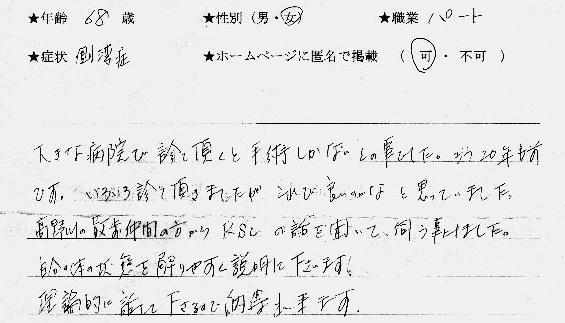 ★年齢 68 歳 ★性別（男・女） ★職業 パート
★症状 側湾症 ★ホームページに匿名で掲載 （ 可 ・ 不可 ）
大きな病院で診て頂くと手術しかないとの事でした。もう20年も前
です。いろいろ診て頂きましたが これで良いのかな と思っていました。
高野山の散歩仲間の方から KSC の話を聞いて、伺う事にしました。
自分の体の状態を解りやすく説明して下さいます！
理論的に話して下さるので納得出来ます。